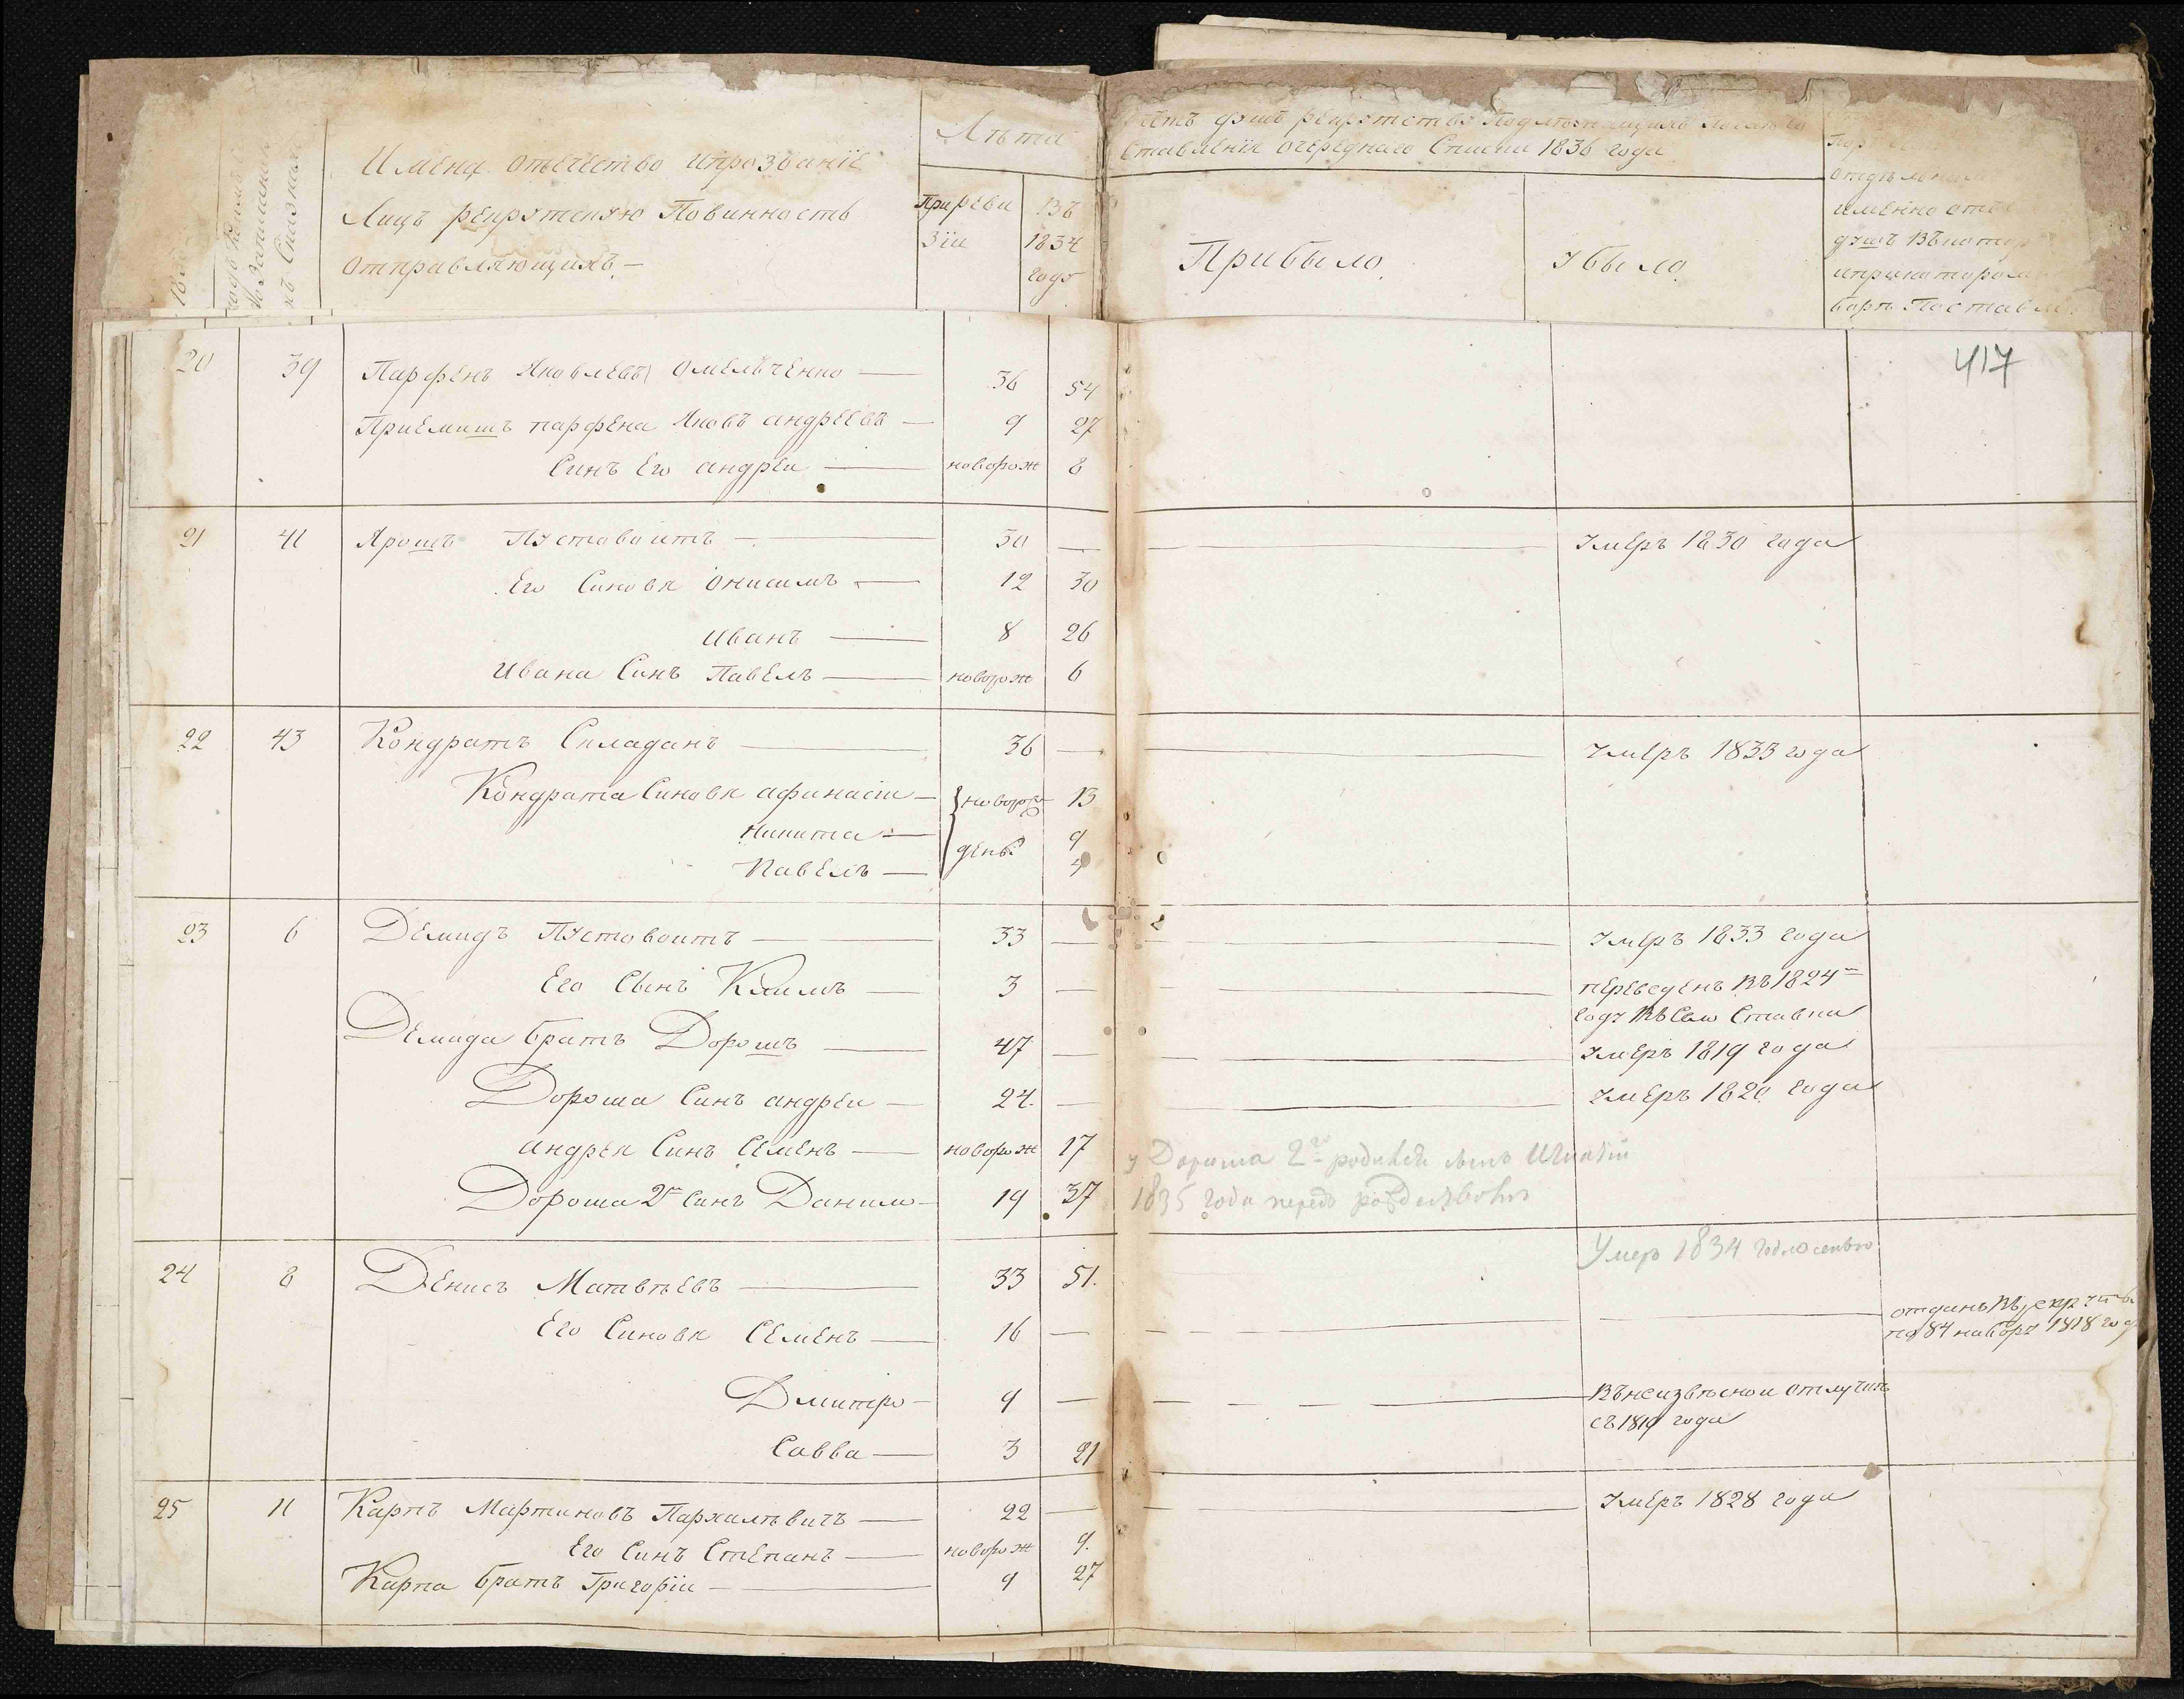 Имена отечество ипрозваніе
Лицъ рекрутскую Повинность
Отправляющихъ.—
Лѣта
При реви
зіи
Въ
1834
году
душъ рекрутство
Ставленія очереднаго Списка 1836 года
Прибыло
Убыло
именно отъ
душъ Въкотор
417
20 39 Парфенъ Яковлевъ Омельченко — 36 54
Приемишъ парфена Яковъ андреевъ — 9 27
Синъ Его андреи — новорож 8
21 41 Ярошъ Пустовоитъ — 50 — Умеръ 1830 года
Его Синовя Онисимъ — 12 30
Иванъ — 8 26
Ивана Синъ Павелъ — новорож 6
22 43 Кондратъ Складанъ — 36 — Умеръ 1833 года
Кондрата Синовя афанасіи — новорож 13
никита — 9
Павелъ — день. 4
23 6 Демидъ Пустовоитъ — 33 — Умеръ 1833 года
Его Сынъ Климъ — 3 — переведенъ Въ 1824
году Въ Село Ставки
Демида братъ Дорошъ — 47 — Умеръ 1819 года
Дороша Синъ андреи — 24. — Умеръ 1820 года
андрея Синъ Семенъ — новорож 17 у Дороша 2го родился сынъ Игнатій
Дороша 2й Синъ Данило — 19 37 1835 года передъ
Умеръ 1834 года осенью
24 8 Денисъ Матвѣевъ — 33 51.
Его Синовя Семенъ — 16 — отданъ Въ рекруты
по 84 набору 1818 год
Дмитро — 9 — Въ неизвѣсной отлучкѣ
съ 1819 года
Савва — 3 21
25 11 Карпъ Мартиновъ Пархилѣвичъ — 22 — Умеръ 1828 года
Его Синъ Степанъ — новорож 9.
Карпа братъ Григоріи — 9 27